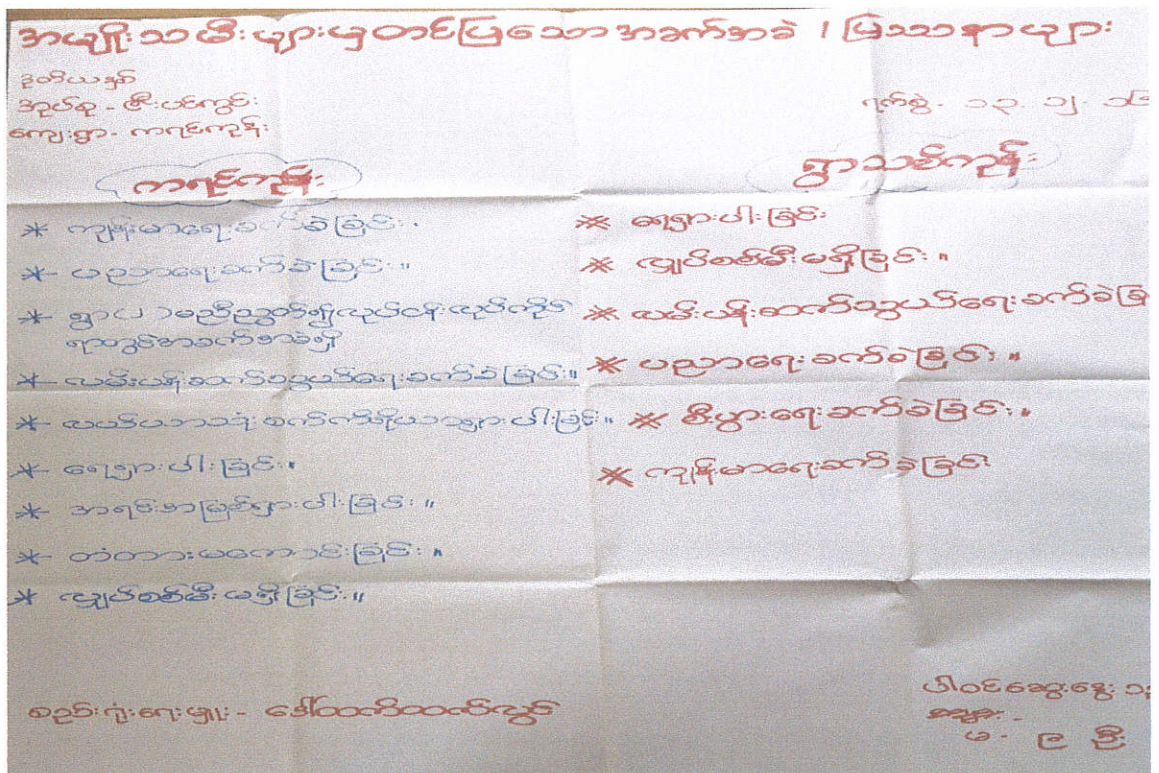 အမျိုးသမီးများမှတင်ပြသောအခက်အခဲ / ပြဿနာများ
ဒုတိယနှစ်
အုပ်စု - ဇီးပင်ကွင်း
ကျေးရွာ - ကရင်ကုန်း
ရက်စွဲ - ၁၃. ၁၂. ၁၆
ကရင်ကုန်း
* ကျန်းမာရေးခက်ခဲခြင်း.
* ပညာရေးခက်ခဲခြင်း။
* ရွာ( ၂ )မညီညွတ်၍လုပ်ငန်းလုပ်ကိုင်
ရာတွင်အခက်အခဲရှိ
* လမ်းပန်းဆက်သွယ်ရေးခက်ခဲခြင်း။
* လယ်ယာသုံးစက်ကိရိယာရှားပါးခြင်း။
* ရေရှားပါးခြင်း။
* အရင်းအမြစ်ရှားပါးခြင်း။
* တံတားမကောင်းခြင်း။
* လျှပ်စစ်မီးမရှိခြင်း။
ရွာသစ်ကုန်း
* ရေရှားပါးခြင်း
* လျှပ်စစ်မီးမရှိခြင်း။
* လမ်းပန်းဆက်သွယ်ရေးခက်ခဲခြ
* ပညာရေးခက်ခဲခြင်း။
* စီးပွားရေးခက်ခဲခြင်း။
* ကျန်းမာရေးခက်ခဲခြင်း
စည်းရုံးရေးမှူး - ဒေါ်ထက်ထက်လွင်
ပါဝင်ဆွေးနွေး
မ - ၉ ဦး